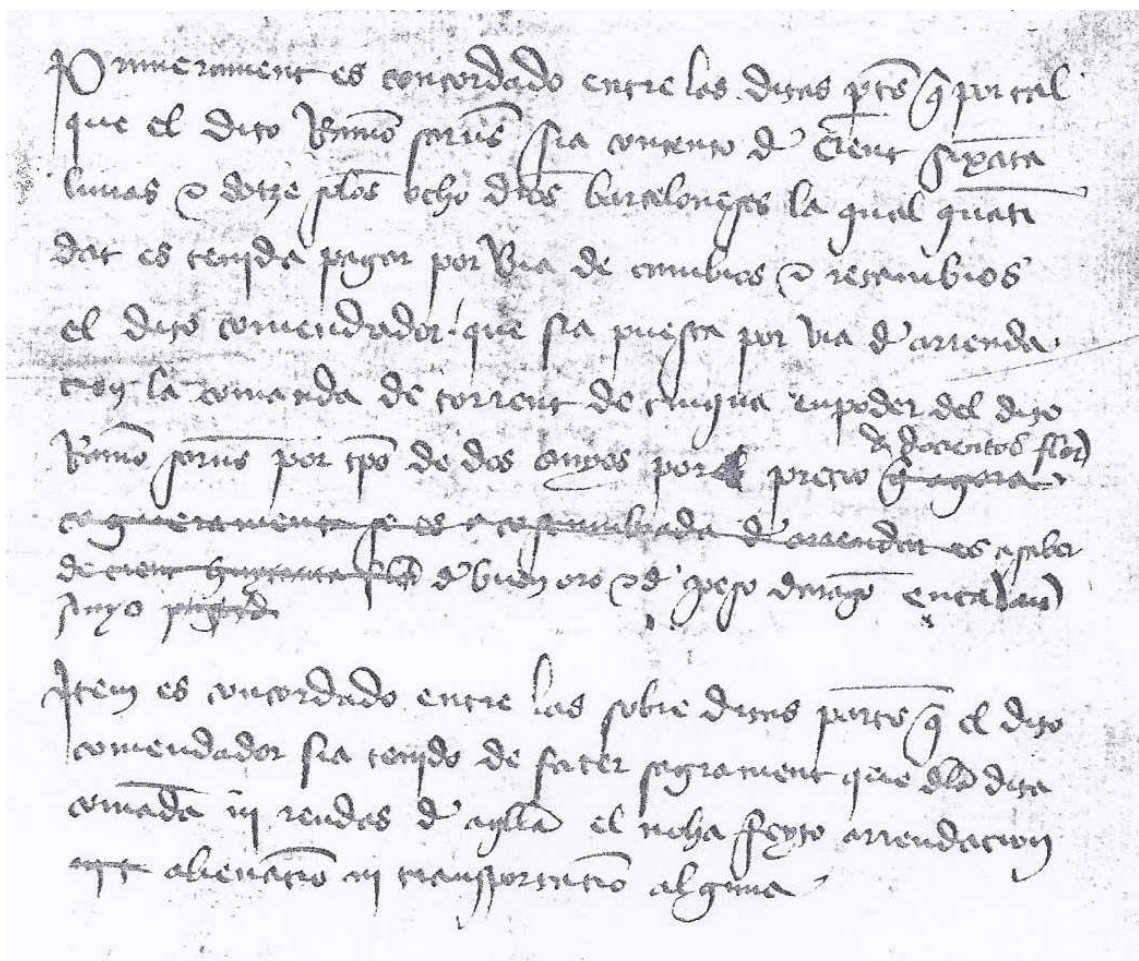 Primerament es concordado entre las ditas ptes q por tal
que el dito Ramo sia contento d cient sixata
liuras e dotze solos ocho dros barceloneses la qual quati
dat es tenida pagar por via de cambios e recambios
el dito comendador que sia puesta por via d arrenda
cion la comanda de torrent de cinqua en poder del dito
Ramo por tpo de dos anyos por el precio q agora
de docientos flor
se es acostumbrada d arrendar es asaber
de cient d buen oro e d peso darago en cada un
anyo
Item es concordado entre las sobre ditas partes q el dito
comendador sia tenido de facer sagrament que dla dita
comada ni rendas d aqlla el no ha feyto arrendacion
alienacio ni transportacio alguna